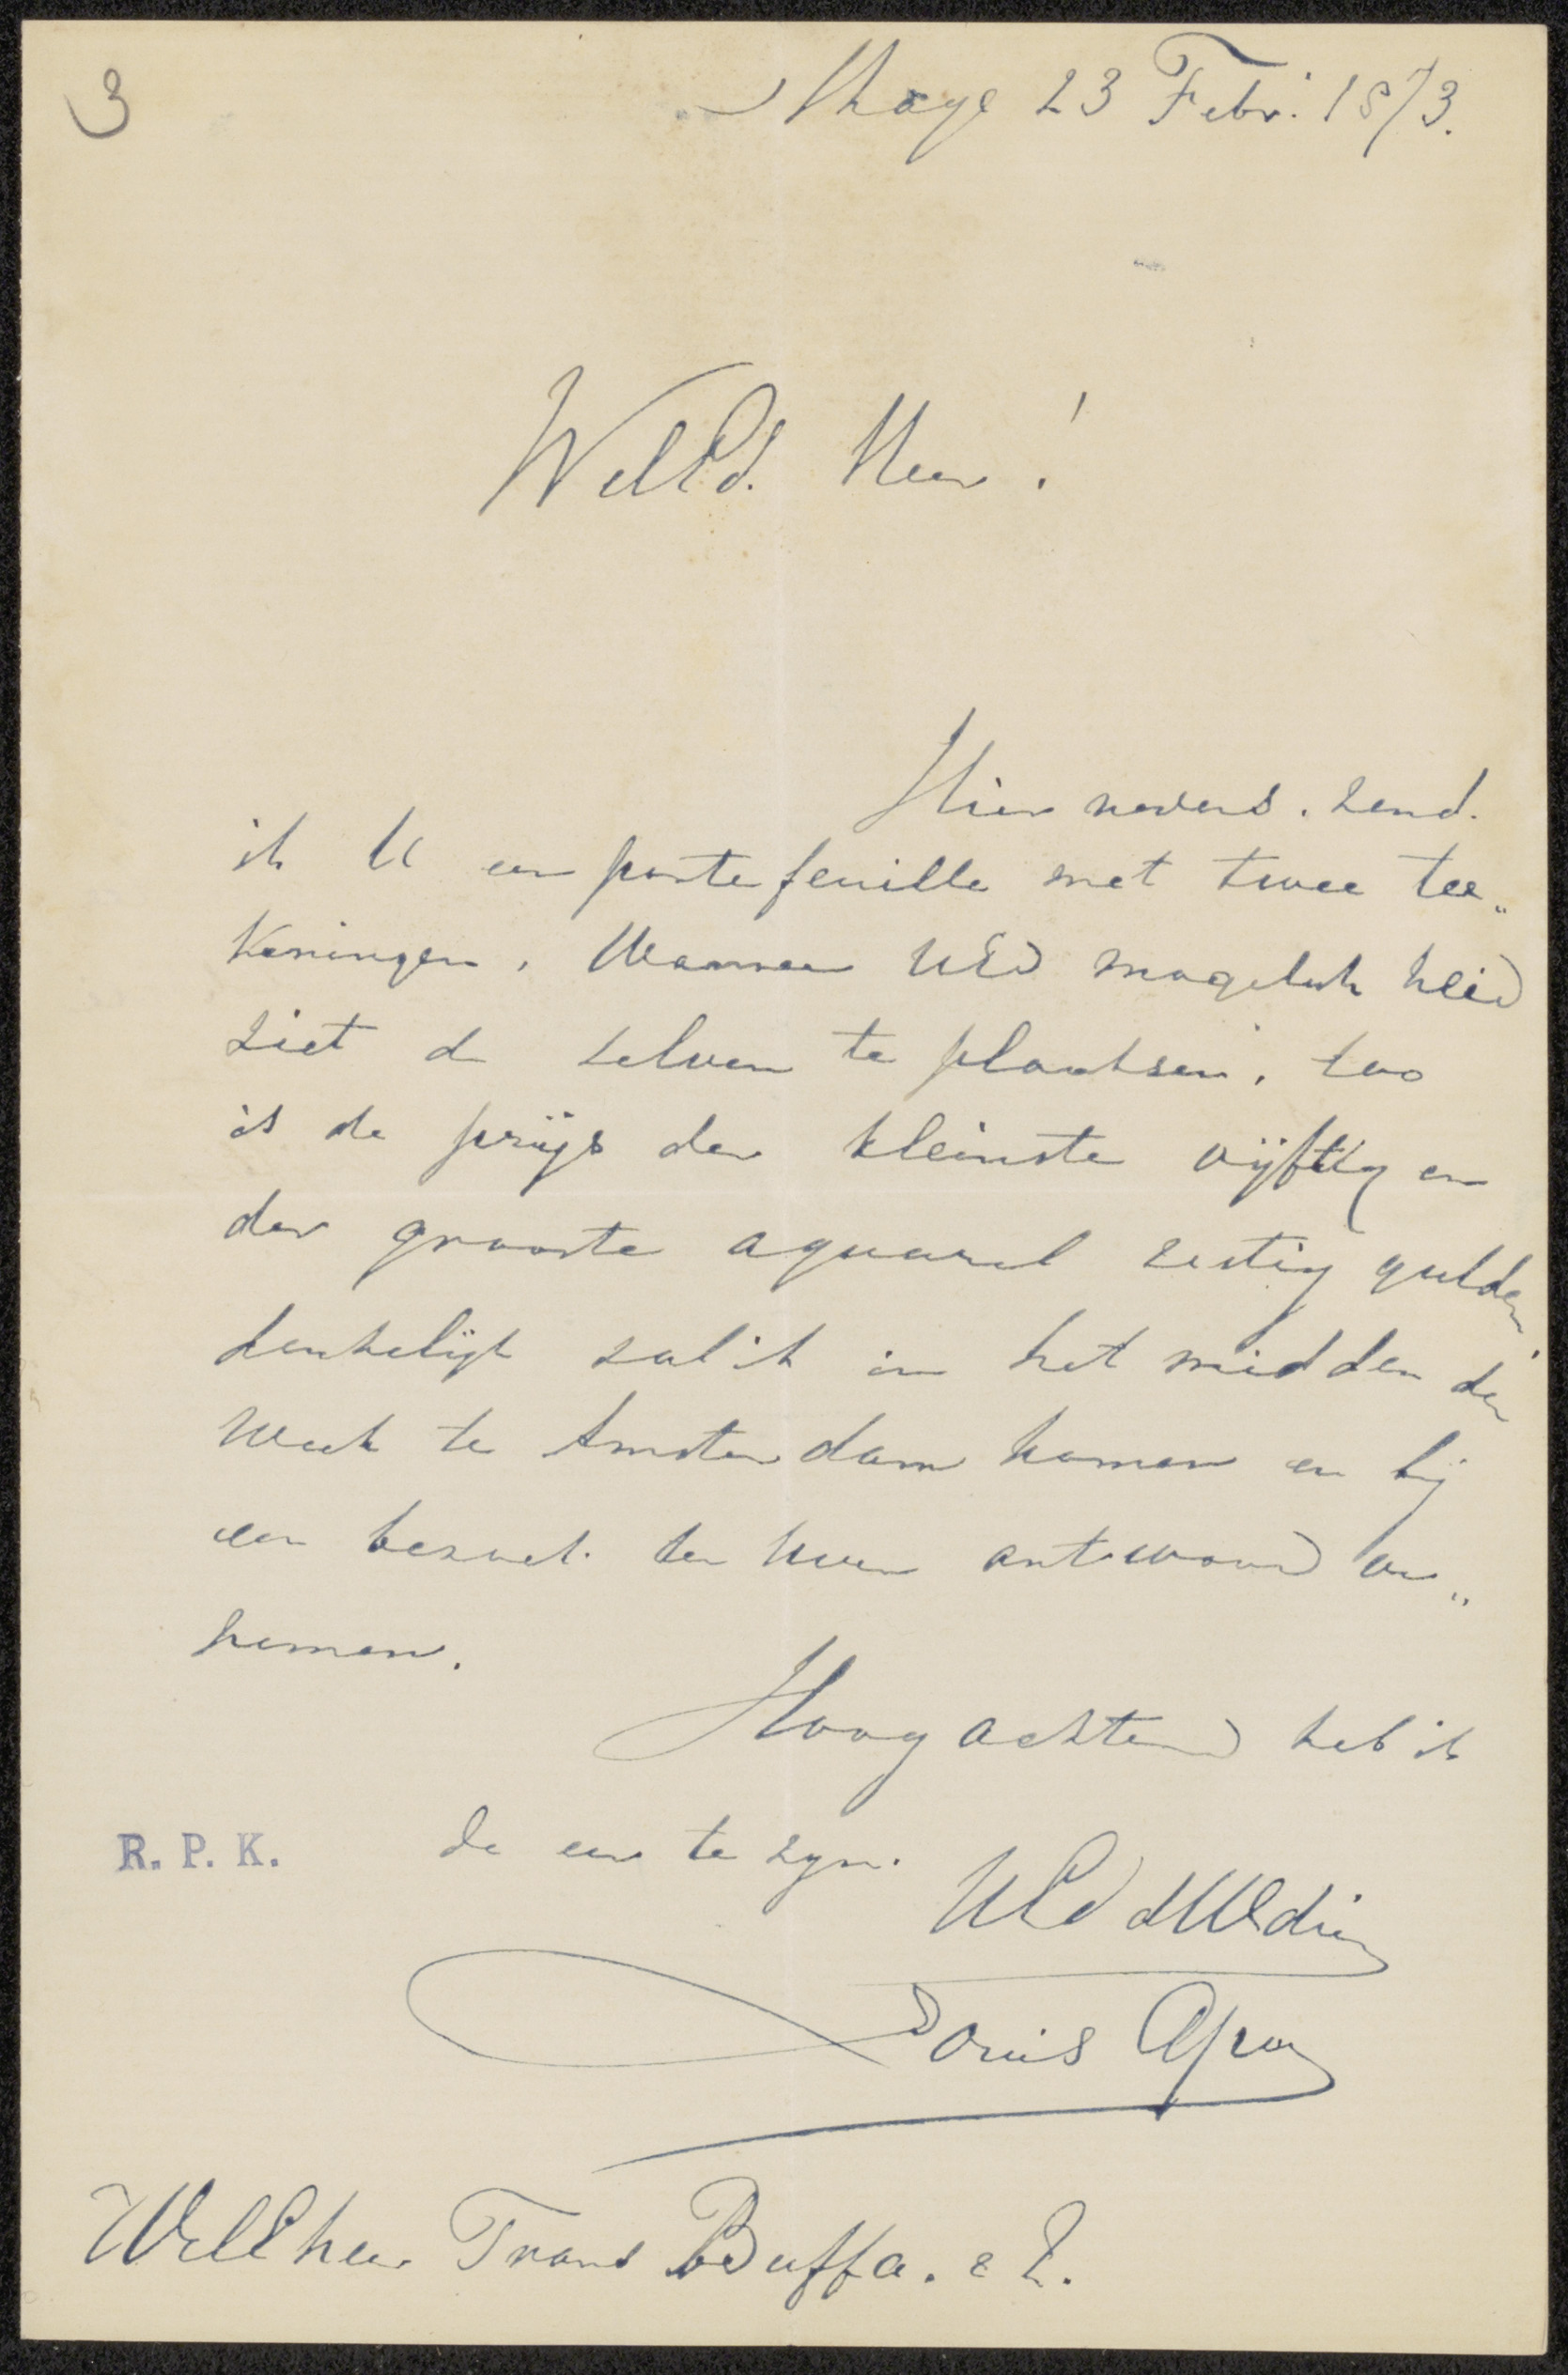 3
s Hage 23 Febr. 1873.
WelEd. Heer!
Hier nevens. zend.
ik U een porte feuille met twee tee„
keningen. Wanneer UEd mogelijk heid
ziet de zelven te plaatsen. zoo
is de prijs der kleinste vijftig en
der grootste aquarel zestig gulden
denkelijk zal ik in het midden der
week te Amsterdam komen en bij
een bezoek. den uwen antwoord ver„
nemen.
Hoog achtend heb ik
de eer te zyn.
R. P. K.
UEd dWdien
Louis Apol
WelEheer Frans Buffa. & Z.